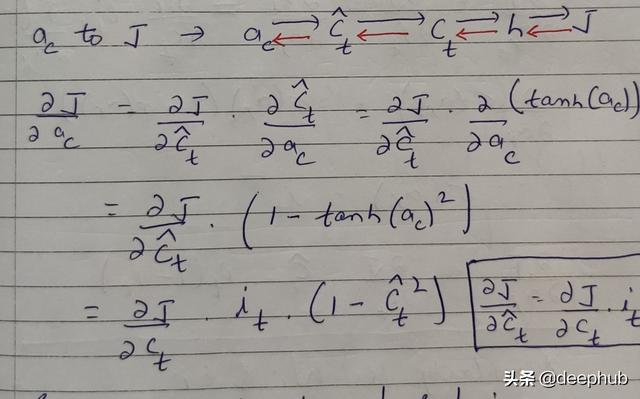 a_c to J → a_c ⇄ Ĉ_t ⇄ C_t ⇄ h ⇄ J
∂J/∂a_c = ∂J/∂Ĉ_t · ∂Ĉ_t/∂a_c = ∂J/∂Ĉ_t · ∂/∂a_c (tanh(a_c))
= ∂J/∂Ĉ_t · (1 - tanh(a_c)²)
= ∂J/∂C_t · i_t · (1 - Ĉ_t²) ∂J/∂Ĉ_t = ∂J/∂C_t · i_t
头条 @deephub